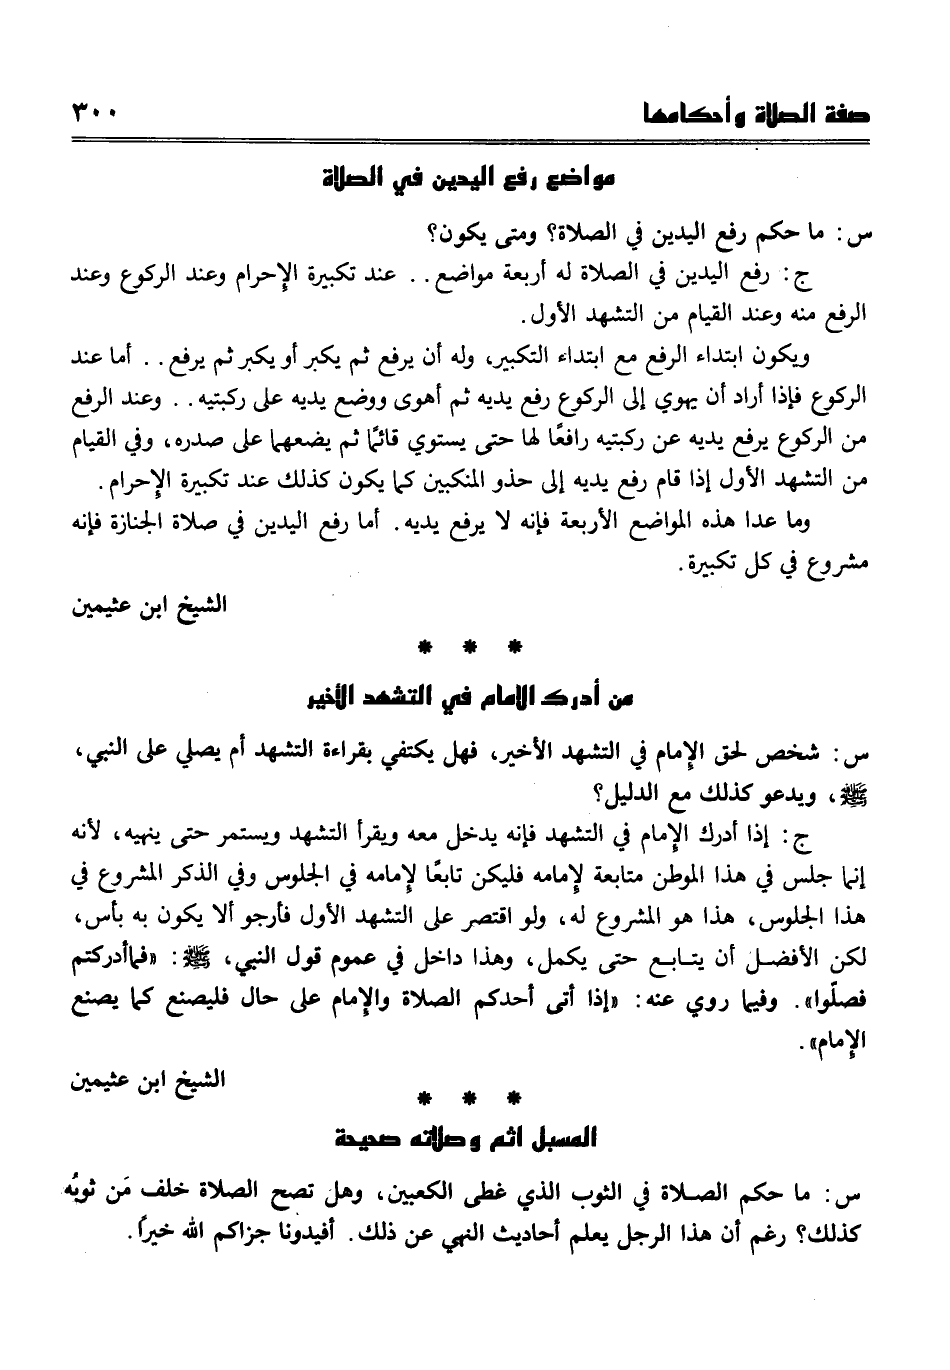 صفة الصلاة وأحكامها ٣٠٠
مواضع رفع اليدين في الصلاة
س: ما حكم رفع اليدين في الصلاة؟ ومتى يكون؟
ج: رفع اليدين في الصلاة له أربعة مواضع.. عند تكبيرة الإحرام وعند الركوع وعند
الرفع منه وعند القيام من التشهد الأول.
ويكون ابتداء الرفع مع ابتداء التكبير، وله أن يرفع ثم يكبر أو يكبر ثم يرفع.. أما عند
الركوع فإذا أراد أن يهوي إلى الركوع رفع يديه ثم أهوى ووضع يديه على ركبتيه.. وعند الرفع
من الركوع يرفع يديه عن ركبتيه رافعًا لها حتى يستوي قائمًا ثم يضعهما على صدره، وفي القيام
من التشهد الأول إذا قام رفع يديه إلى حذو المنكبين كما يكون كذلك عند تكبيرة الإحرام.
وما عدا هذه المواضع الأربعة فإنه لا يرفع يديه. أما رفع اليدين في صلاة الجنازة فإنه
مشروع في كل تكبيرة.
الشيخ ابن عثيمين
* * *
من أدرك الإمام في التشهد الأخير
س: شخص لحق الإمام في التشهد الأخير، فهل يكتفي بقراءة التشهد أم يصلي على النبي،
ﷺ، ويدعو كذلك مع الدليل؟
ج: إذا أدرك الإمام في التشهد فإنه يدخل معه ويقرأ التشهد ويستمر حتى ينهيه، لأنه
إنما جلس في هذا الموطن متابعة لإمامه فليكن تابعًا لإمامه في الجلوس وفي الذكر المشروع في
هذا الجلوس، هذا هو المشروع له، ولو اقتصر على التشهد الأول فأرجو ألا يكون به بأس،
لكن الأفضل أن يتابع حتى يكمل، وهذا داخل في عموم قول النبي، ﷺ: «فما أدركتم
فصلّوا». وفيما روي عنه: «إذا أتى أحدكم الصلاة والإمام على حال فليصنع كما يصنع
الإمام».
الشيخ ابن عثيمين
* * *
المسبل اثم وصلاته صحيحة
س: ما حكم الصلاة في الثوب الذي غطى الكعبين، وهل تصح الصلاة خلف مَن ثوبُه
كذلك؟ رغم أن هذا الرجل يعلم أحاديث النهي عن ذلك. أفيدونا جزاكم الله خيراً.